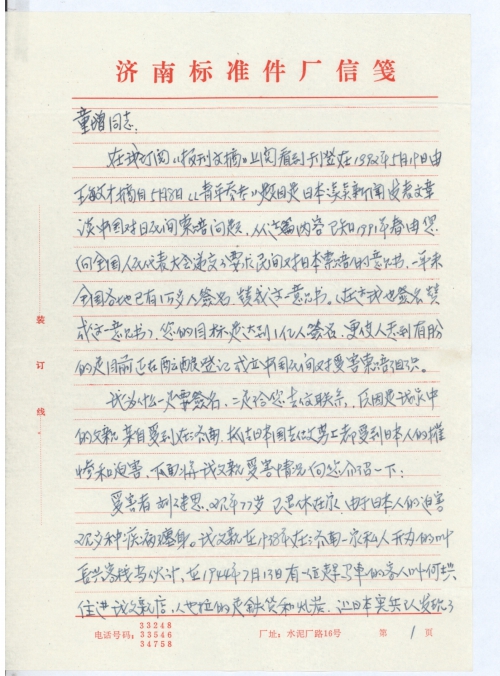 济南标准件厂信笺
童增同志:
在我订阅《报刊文摘》上面看到刊登在1992年5月19日由
王敏才摘自5月8日《青年参考》题目是日本读卖新闻发表文章
谈中国对日民间索赔问题,从这篇内容已知1991年春由您
向全国人民代表大会递交了要求民间对日本索赔的意见书,一年来
全国各地已有10万多人签名,赞成这一意见书。(在这我也签名赞
成这一意见书)您的目标是达到1亿人签名,更使人
的是目前正在酝酿登记成立中国民间对受害索赔组织。
我为什么一是要签名,二是给您去信联系,原因是我家中
的父亲亲自受到在济南
惨和迫害,下面将我父亲受害情况向您介绍一下:
受害者刘建思,现年77岁已退休在家,由于日本人的迫害
现多种疾病缠身。我父亲在1938年在济南一家私人开办的叫
长兴客栈当伙计,在1944年7月13日有一位赶马车的客人叫何
住进我父亲店,人也拉的是铁货和火岩,让日本宪兵队发现了
装
订
线
电话号码:
33248
33546
34758
厂址:水泥厂路16号
第 1 页